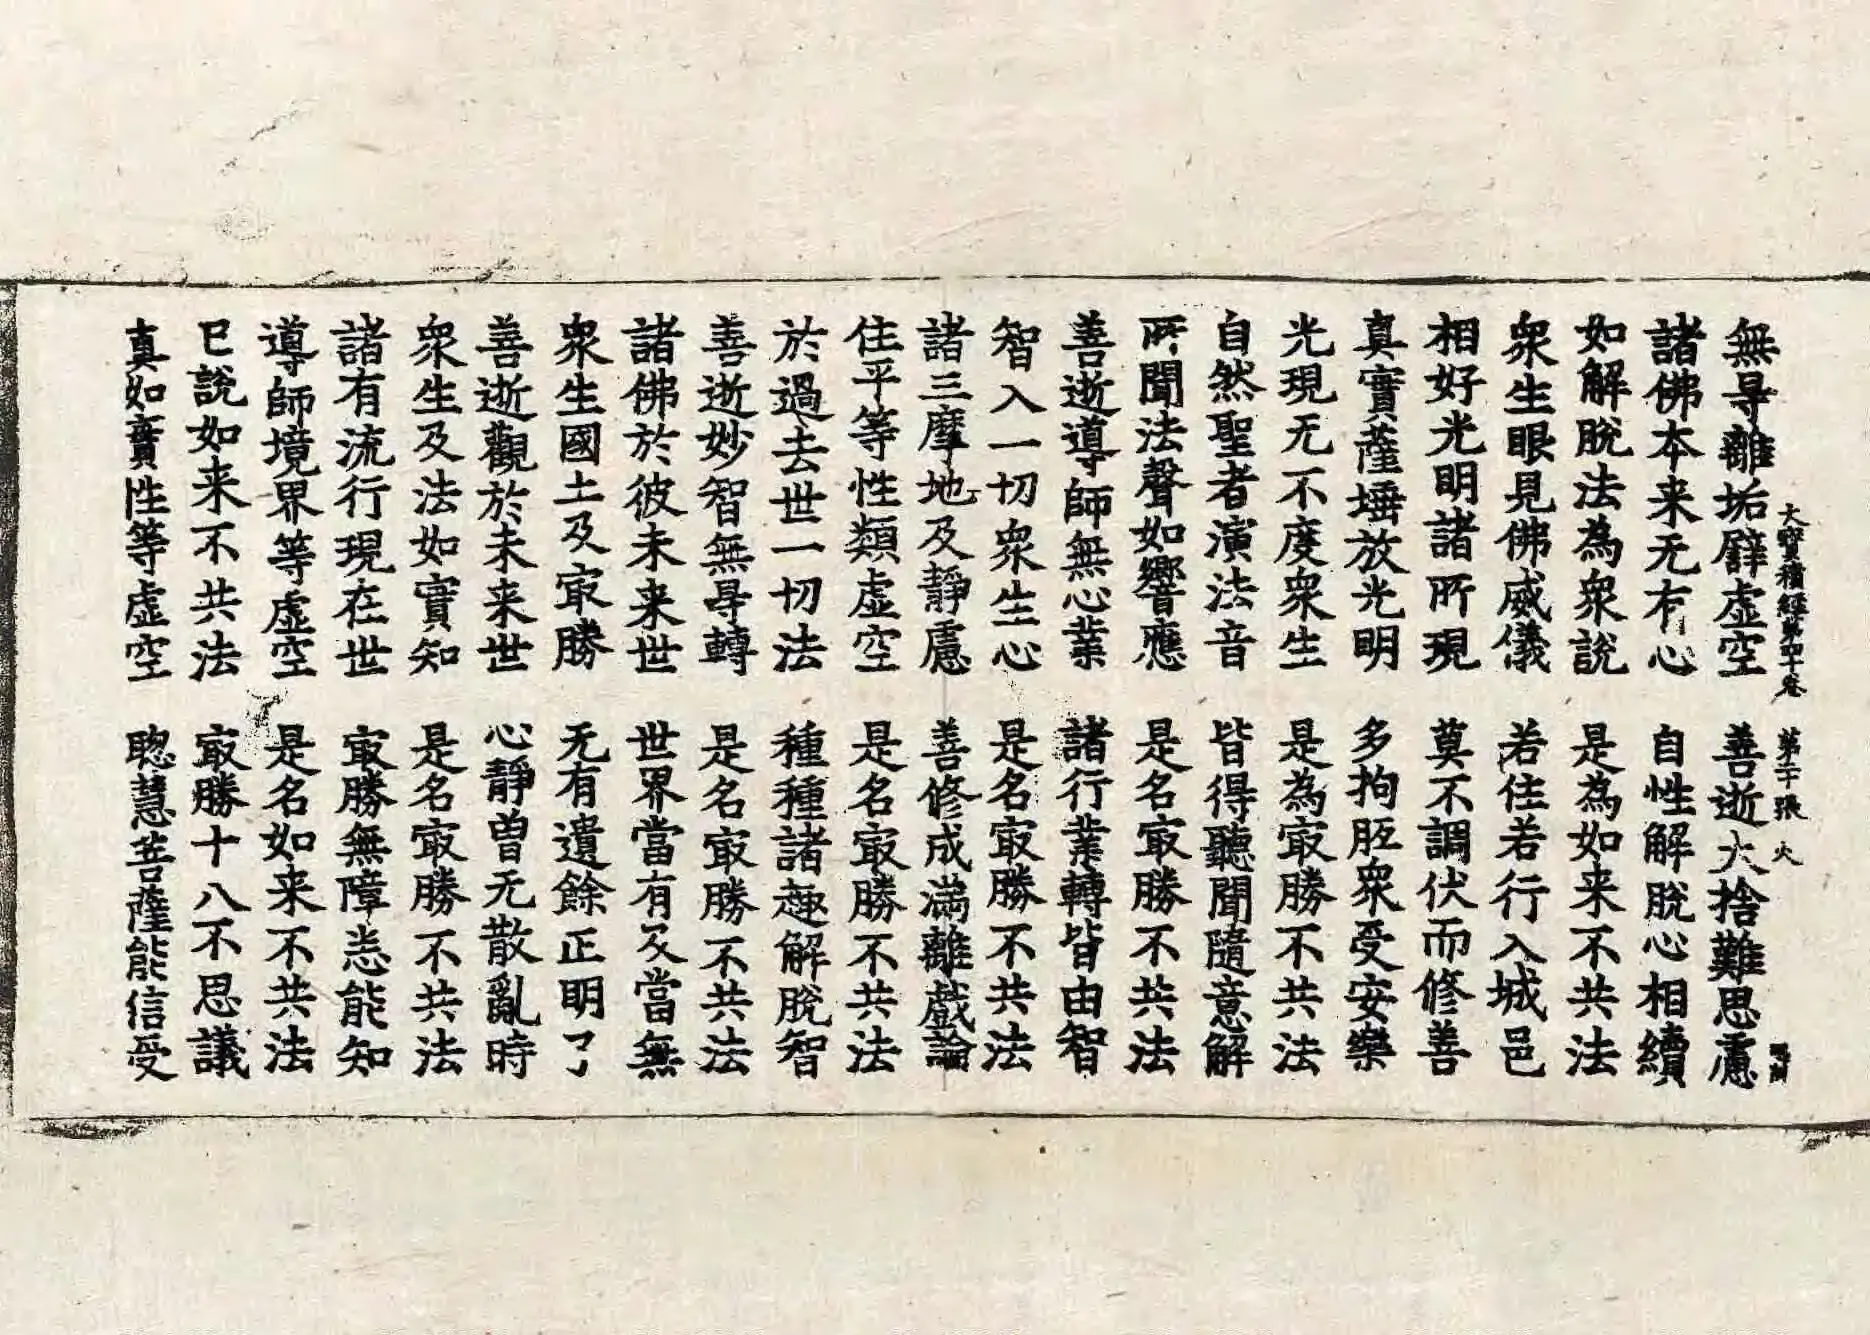 大寶積經第四十卷 第二十張 火
無㝵離垢辟虛空 善逝大捨難思慮
諸佛本来无有心 自性解脫心相續
如解脫法為衆說 是為如来不共法
衆生眼見佛威儀 若住若行入城邑
相好光明諸所現 莫不調伏而修善
真實薩埵放光明 多拘胝衆受安樂
光現无不度衆生 是為㝡勝不共法
自然聖者演法音 皆得聽聞隨意解
所聞法聲如響應 是名㝡勝不共法
善逝導師無心業 諸行業轉皆由智
智入一切衆生心 是名㝡勝不共法
諸三摩地及靜慮 善修成滿離戲論
住平等性類虛空 是名㝡勝不共法
於過去世一切法 種種諸趣解脫智
善逝妙智無㝵轉 是名㝡勝不共法
諸佛於彼未来世 世界當有及當無
衆生國土及㝡勝 无有遺餘正明了
善逝觀於未来世 心靜曽无散亂時
衆生及法如實知 是名㝡勝不共法
諸有流行現在世 㝡勝無障悉能知
導師境界等虛空 是名如来不共法
已說如来不共法 㝡勝十八不思議
真如實性等虛空 聡慧菩薩能信受